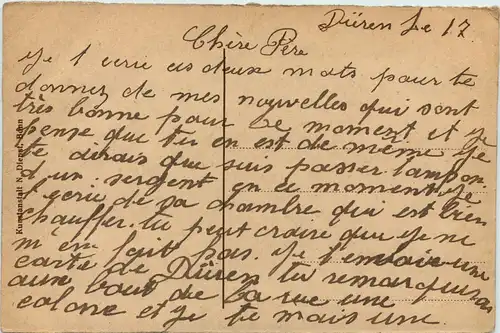 Düren Le 17
Chère Père
Je t'ecrie ces deux mots pour te
donnez de mes nouvelles qui sont
très bonne pour ce moment et je
pense que tu en est de même Je
te dirais que suis passer tampon
d'un sergent en ce moment Je
gerie de sa chambre qui est bien
chauffer. tu peut craire que je ni
m'en fait pas. Je t'envoie une
carte de Düren tu remarquras
aux bout de la rue une
colone et je te mais une
Kunstanstalt N. Diepen, Bonn